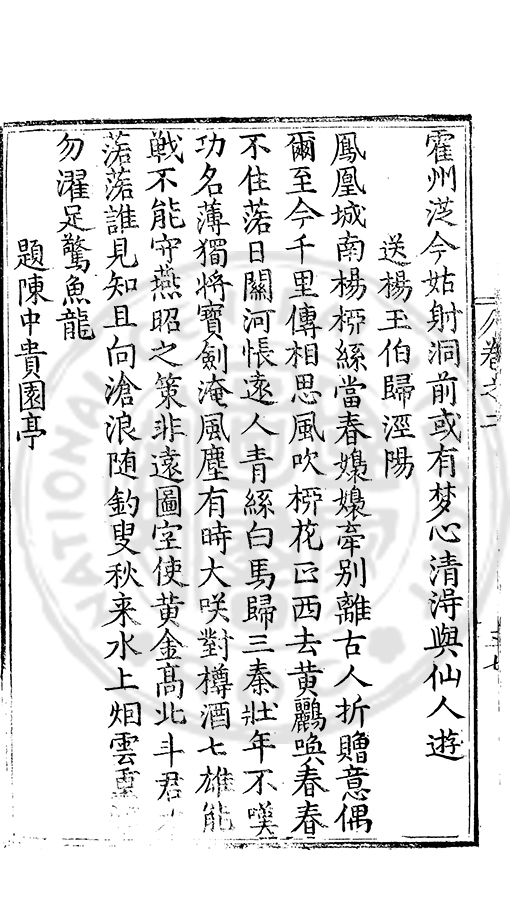 霍州茫今姑射洞前或有梦心清淂與仙人遊
送楊王伯歸涇陽
鳳凰城南楊桺絲當春嬝嬝牽別離古人折贈意偶
爾至今千里傳相思風吹桺花正西去黄鸝喚春春
不住落日關河悵遠人青絲白馬歸三秦壯年不嘆
功名薄獨將寶劍淹風塵有時大咲對樽酒七雄能
戦不能守燕昭之策非遠圖空使黄金髙北斗君
落落誰見知且向滄浪随釣叟秋来水上烟雲重
勿濯足驚魚龍
題陳中貴園亭
卷之一